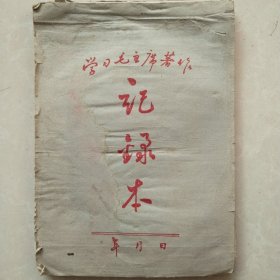 学习毛主席著作
记
录
本
年月日